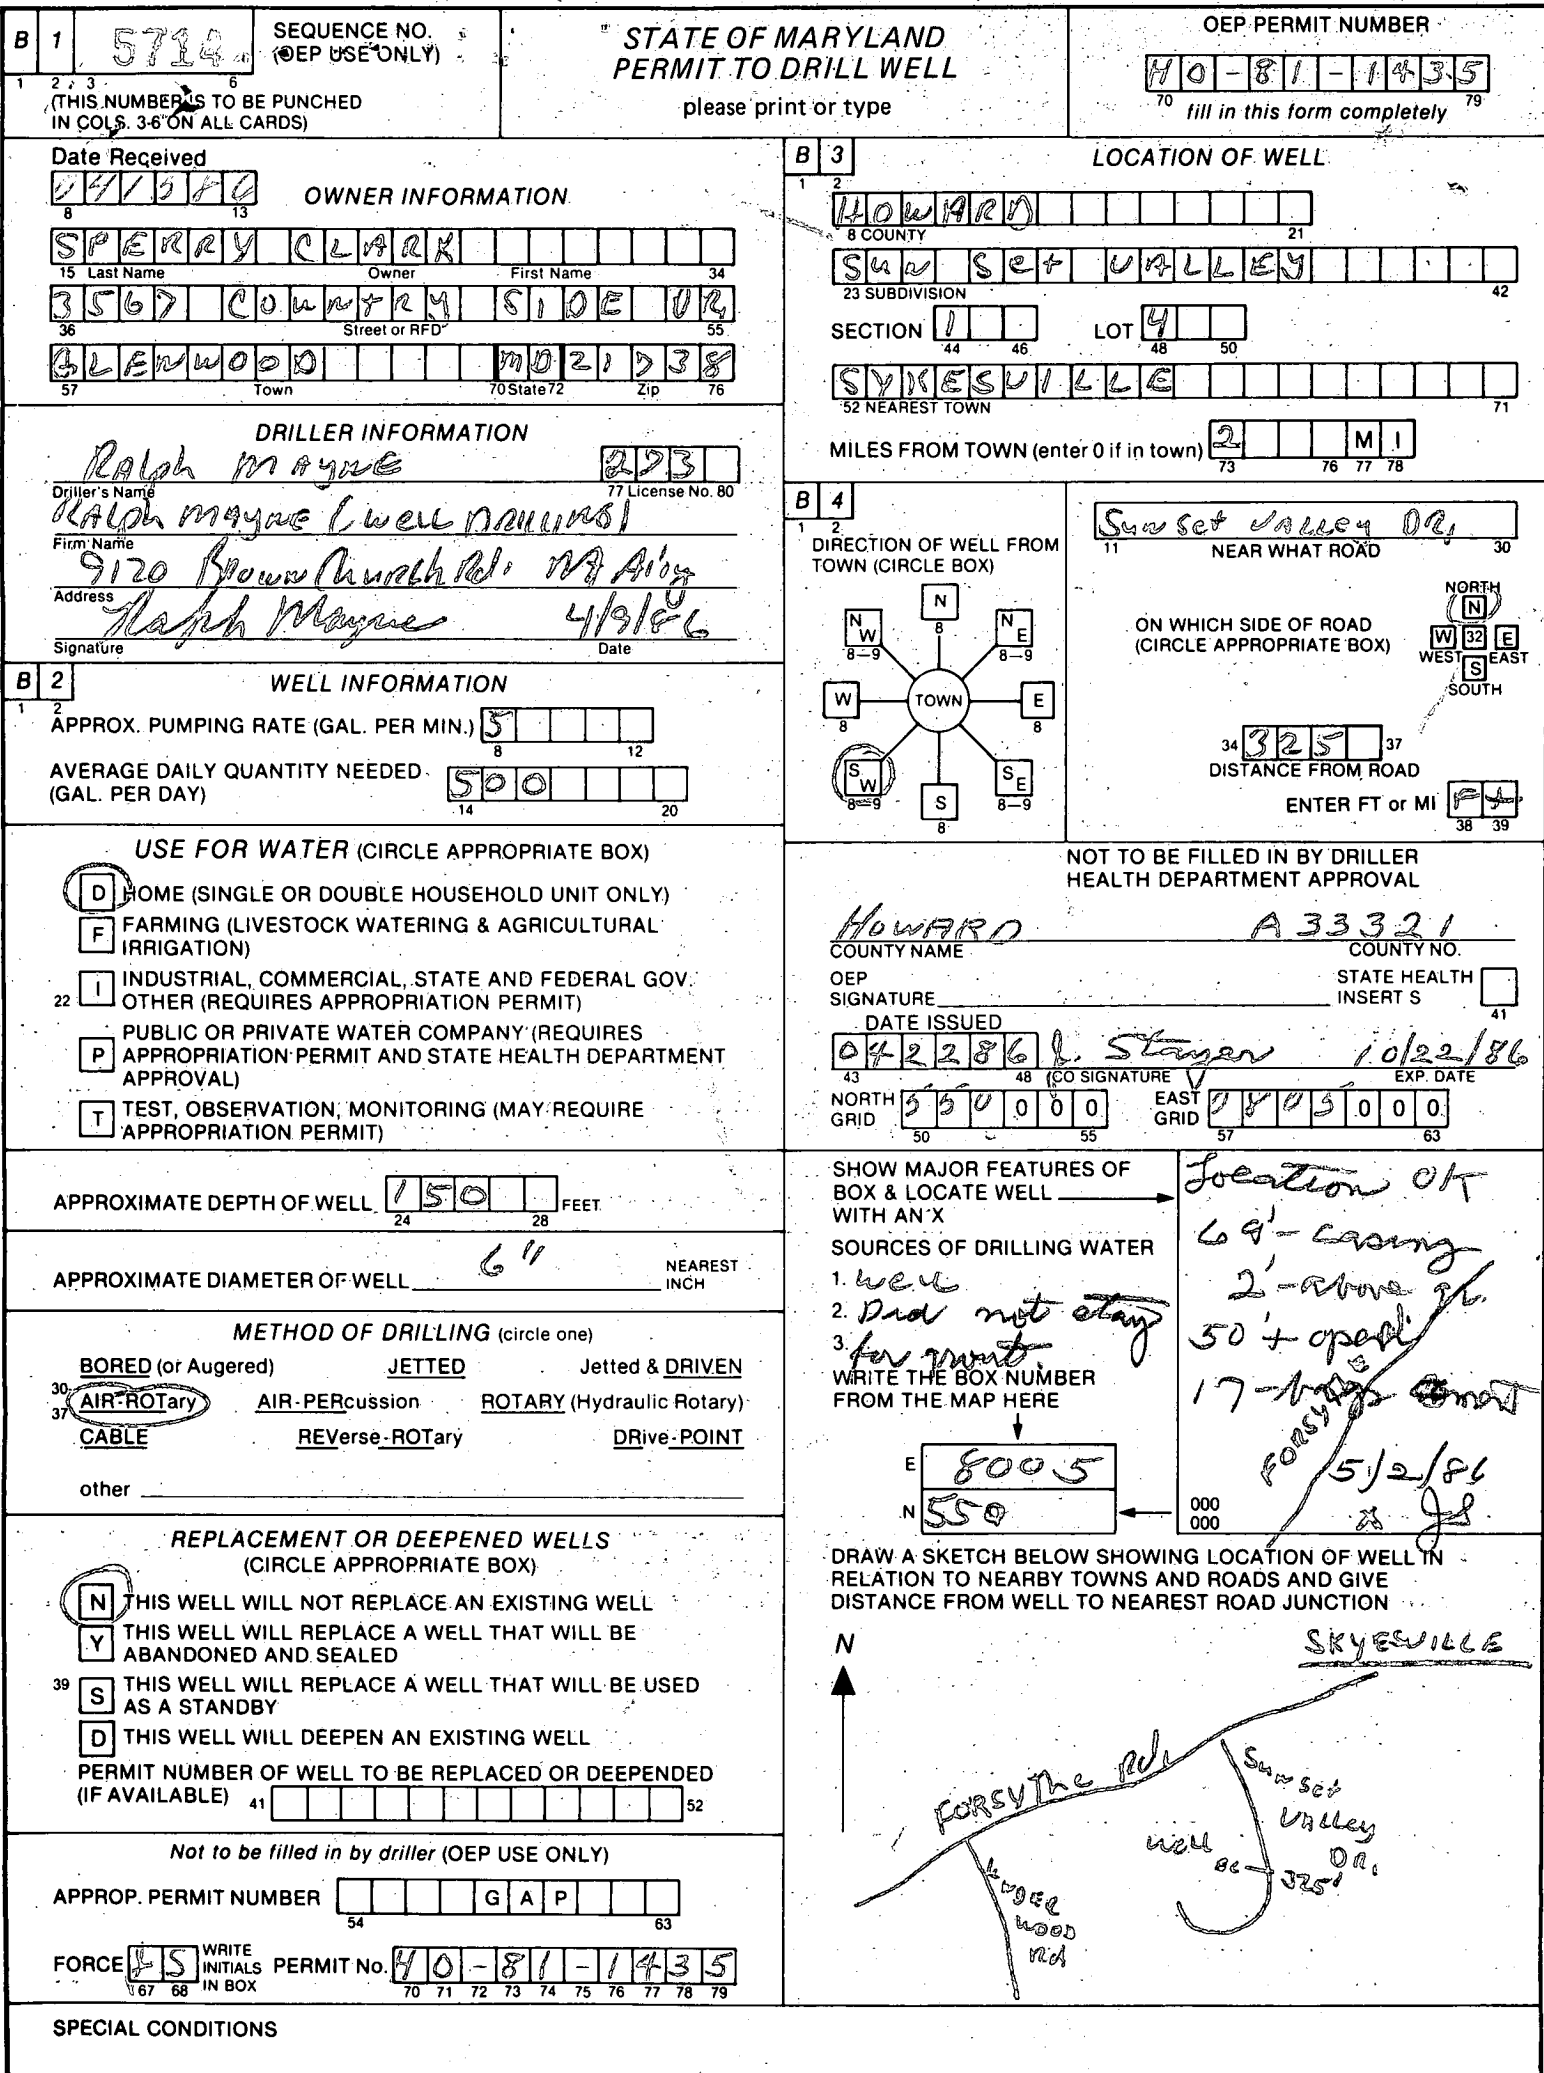 B 1 5714 SEQUENCE NO. (OEP USE ONLY)
1 2 3 6
(THIS NUMBER IS TO BE PUNCHED
IN COLS. 3-6 ON ALL CARDS)
STATE OF MARYLAND
PERMIT TO DRILL WELL
please print or type
OEP PERMIT NUMBER
HO-81-1435
70 79
fill in this form completely
Date Received
041586
8 13
OWNER INFORMATION
SPERRY CLARK
15 Last Name Owner First Name 34
3567 COUNTRY SIDE DR
36 Street or RFD 55
GLENWOOD MD 21738
57 Town 70 State 72 Zip 76
DRILLER INFORMATION
Ralph MAYNE 273
Driller's Name 77 License No. 80
RALph MAYNE (Well DRILLING)
Firm Name
9120 Brown Church Rd. Mt Airy
Address
Ralph Mayne 4/9/86
Signature Date
B 2 WELL INFORMATION
1 2
APPROX. PUMPING RATE (GAL. PER MIN.) 5
8 12
AVERAGE DAILY QUANTITY NEEDED
(GAL. PER DAY) 500
14 20
USE FOR WATER (CIRCLE APPROPRIATE BOX)
D HOME (SINGLE OR DOUBLE HOUSEHOLD UNIT ONLY)
F FARMING (LIVESTOCK WATERING & AGRICULTURAL
IRRIGATION)
22 I INDUSTRIAL, COMMERCIAL, STATE AND FEDERAL GOV.
OTHER (REQUIRES APPROPRIATION PERMIT)
P PUBLIC OR PRIVATE WATER COMPANY (REQUIRES
APPROPRIATION PERMIT AND STATE HEALTH DEPARTMENT
APPROVAL)
T TEST, OBSERVATION, MONITORING (MAY REQUIRE
APPROPRIATION PERMIT)
APPROXIMATE DEPTH OF WELL 150 FEET
24 28
APPROXIMATE DIAMETER OF WELL 6" NEAREST
INCH
METHOD OF DRILLING (circle one)
BORED (or Augered) JETTED Jetted & DRIVEN
30 AIR-ROTary AIR-PERcussion ROTARY (Hydraulic Rotary)
37
CABLE REVerse-ROTary DRive-POINT
other
REPLACEMENT OR DEEPENED WELLS
(CIRCLE APPROPRIATE BOX)
N THIS WELL WILL NOT REPLACE AN EXISTING WELL
Y THIS WELL WILL REPLACE A WELL THAT WILL BE
ABANDONED AND SEALED
39 S THIS WELL WILL REPLACE A WELL THAT WILL BE USED
AS A STANDBY
D THIS WELL WILL DEEPEN AN EXISTING WELL
PERMIT NUMBER OF WELL TO BE REPLACED OR DEEPENDED
(IF AVAILABLE) 41 52
Not to be filled in by driller (OEP USE ONLY)
APPROP. PERMIT NUMBER GAP
54 63
FORCE S WRITE INITIALS IN BOX PERMIT No. HO-81-1435
67 68 70 71 72 73 74 75 76 77 78 79
SPECIAL CONDITIONS
B 3 LOCATION OF WELL
1 2
HOWARD
8 COUNTY 21
Sun Set VALLEY
23 SUBDIVISION 42
SECTION 1 LOT 4
44 46 48 50
SYKESVILLE
52 NEAREST TOWN 71
MILES FROM TOWN (enter 0 if in town) 2 MI
73 76 77 78
B 4
1 2
DIRECTION OF WELL FROM
TOWN (CIRCLE BOX)
N 8
NW 8-9 NE 8-9
W 8 TOWN E 8
SW 8-9 SE 8-9
S 8
Sun set VALLEY DR.
11 NEAR WHAT ROAD 30
ON WHICH SIDE OF ROAD
(CIRCLE APPROPRIATE BOX)
NORTH
N
W 32 E
WEST EAST
S
SOUTH
34 325 37
DISTANCE FROM ROAD
ENTER FT or MI Ft
38 39
NOT TO BE FILLED IN BY DRILLER
HEALTH DEPARTMENT APPROVAL
HOWARD A 33321
COUNTY NAME COUNTY NO.
OEP
SIGNATURE STATE HEALTH
INSERT S
41
DATE ISSUED
042286 J. Stayer 10/22/86
43 48 (CO SIGNATURE EXP. DATE
NORTH GRID 550000 EAST GRID 0805000
50 55 57 63
SHOW MAJOR FEATURES OF
BOX & LOCATE WELL
WITH AN X
SOURCES OF DRILLING WATER
1. well
2. Did not stay
3. for grout.
WRITE THE BOX NUMBER
FROM THE MAP HERE
E 8005
N 550
000
000
Location OK
69'- casing
2'-above gr.
50'+ open
17-bags cement
FORSYTHE
5/2/86
x JS
DRAW A SKETCH BELOW SHOWING LOCATION OF WELL IN
RELATION TO NEARBY TOWNS AND ROADS AND GIVE
DISTANCE FROM WELL TO NEAREST ROAD JUNCTION
N
SKYESVILLE
FORSYThe Rd.
Sunset
Valley
DR.
well
325'
WOOD
Rd